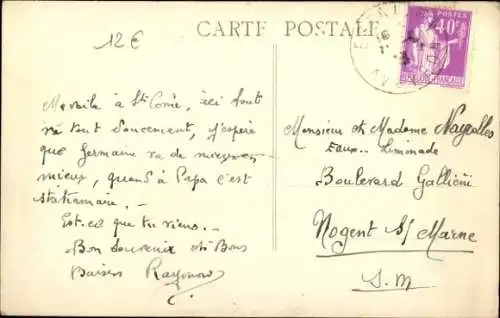 12€
CARTE POSTALE
POSTES
40c
FRANÇAISE
à St Come, ici tout
va tout doucement, j'espère
que Germaine va de mieux en
mieux, quand à Papa c'est
stationnaire. -
Est-ce que tu viens. -
Bon Souvenir et Bons
Baisers Raymond
Monsieur et Madame
Eaux.. Limonade
Boulevard Galliéni
Nogent S/ Marne
S. M